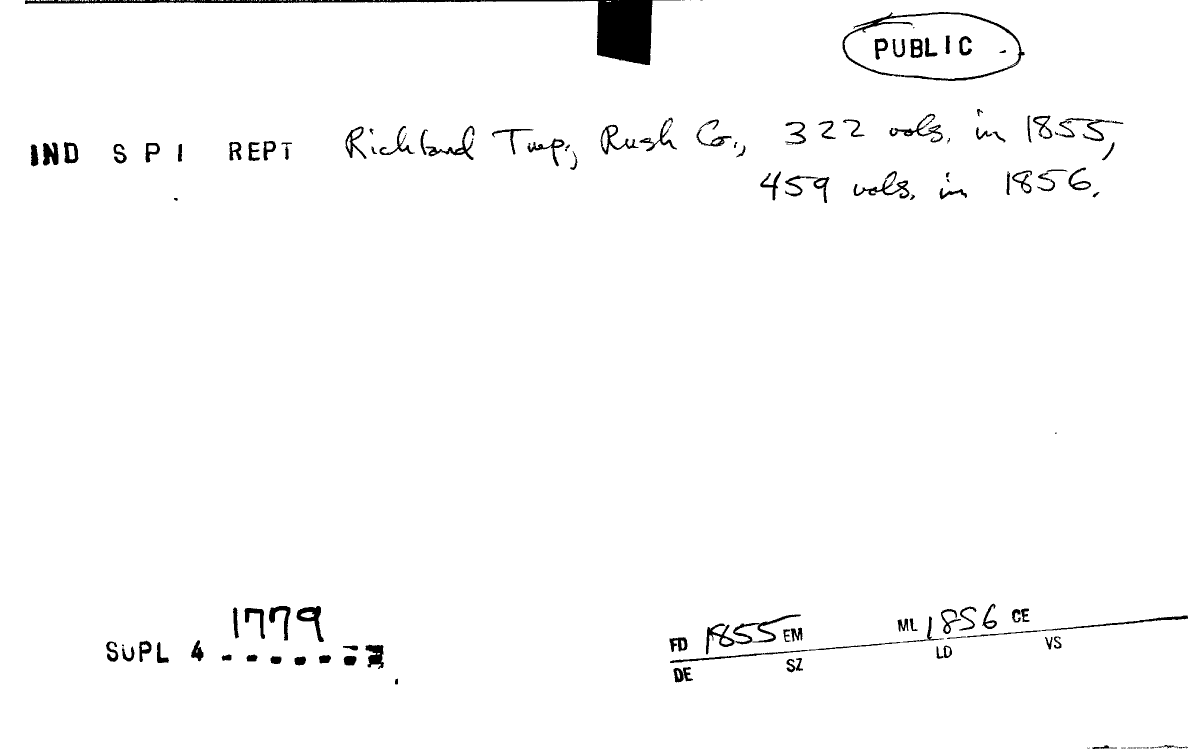 PUBLIC
IND S P I REPT Richland Twp., Rush Co., 322 vols. in 1855,
459 vols. in 1856.
1779
SUPL 4
FD 1855 EM ML 1856 CE
DE SZ LD VS